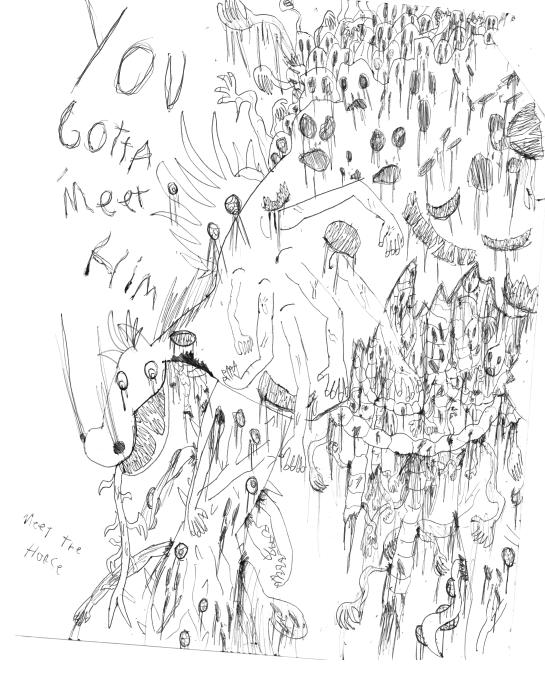 YOU
GOTTA
Meet
HIM
Meet The
HORCE